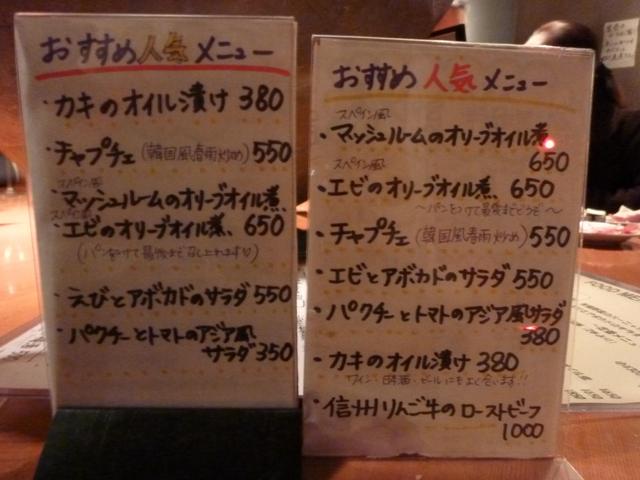 おすすめ人気メニュー
・カキのオイル漬け 380
・チャプチェ(韓国風春雨炒め) 550
スペイン風
・マッシュルームのオリーブオイル煮、
スペイン風
・エビのオリーブオイル煮、650
(パンをつけて最後まで召し上れます♡)
・えびとアボカドのサラダ 550
・パクチーとトマトのアジア風
サラダ350
おすすめ人気メニュー
スペイン風
・マッシュルームのオリーブオイル煮
650
スペイン風
・エビのオリーブオイル煮、650
〜パンをつけて最後までどうぞ〜
・チャプチェ(韓国風春雨炒め)550
・エビとアボカドのサラダ 550
・パクチーとトマトのアジア風サラダ
380
・カキのオイル漬け 380
ワイン・日本酒・ビールにもよく合います!!
・信州りんご牛のローストビーフ
1000
FOOD